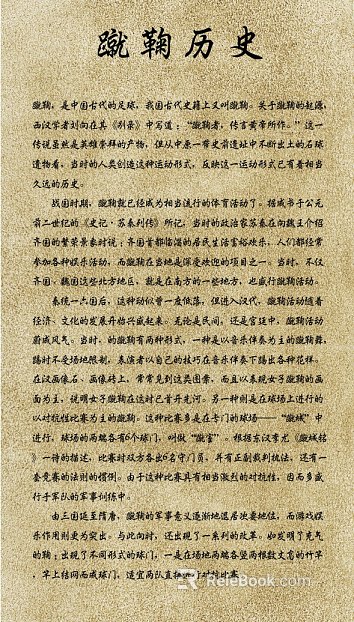 蹴鞠历史
蹴鞠，是中国古代的足球，我国古代史籍上又叫蹴鞠。关于蹴鞠的起源，
西汉学者刘向在其《别录》中写道：“蹴鞠者，传言黄帝所作。”这一
传说虽然是英雄崇拜的产物，但从中原一带史前遗址中不断出土的石球
遗物看，当时的人类创造这种运动形式，反映这一运动形式已有着相当
久远的历史。
战国时期，蹴鞠就已经成为相当流行的体育活动了。据成书于公元
前二世纪的《史记·苏秦列传》所记，当时的政治家苏秦在向魏王介绍
齐国的繁荣景象时说：齐国首都临淄的居民生活富裕欢乐，人们都经常
参加各种娱乐活动，而蹴鞠在当地是深受欢迎的项目之一。当时，不仅
齐国、魏国这些北方地区，就是在南方的一些地方，也盛行蹴鞠活动。
秦统一六国后，这种动似曾一度低落，但进入汉代，蹴鞠活动随着
经济、文化的发展开始兴盛起来。无论是民间，还是宫廷中，蹴鞠活动
蔚成风气。当时，的蹴鞠有两种形式，一种是以音乐伴奏为主的蹴鞠舞，
踢时不受场地限制，表演者以自己的技巧在音乐伴奏下踢出各种花样。
在汉画像石、画像砖上，常常见到这类图案，而且以表现女子蹴鞠的画
面为主，说明女子蹴鞠在这时已首开先河。另一种则是在球场上进行的
以对抗性比赛为主的蹴鞠。这种比赛多是在卡门的球场——“蹴城”中
进行，球场的两端各有6个球门，叫做“蹴室”。根据东汉李尤《蹴城铭
》一诗的描述，比赛时双方各出6名守门员，并有正副裁判执法，还有一
套竞赛的法则的惯例。由于这种比赛具有相当激烈的对抗性，因而多盛
行于军队的军事训练中。
由三国延至隋唐，蹴鞠的军事意义逐渐地退居次要地位，而游戏娱
乐作用则更为突出。与此同时，还出现了一系列的改革。如发明了充气
的鞠；出现了不同形式的球门，一是在场地两端各竖两根数丈高的竹竿
，竿上结网而成球门，适宜两队直接进行对抗比赛。
ReleBook.com